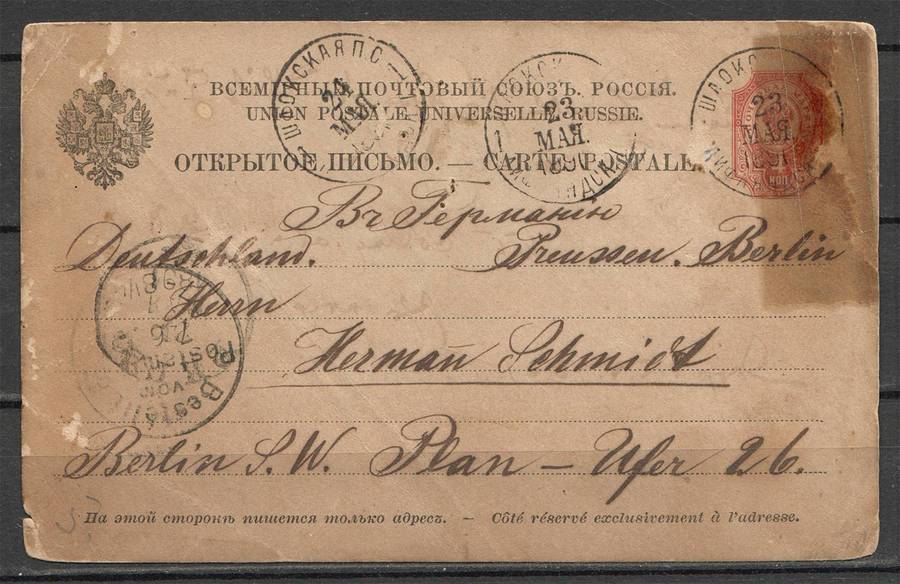 ВСЕМІРНЫЙ ПОЧТОВЫЙ СОЮЗЪ. РОССІЯ.
UNION POSTALE UNIVERSELLE. RUSSIE.
ОТКРЫТОЕ ПИСЬМО. — CARTE POSTALE
23
МАЯ
1891
23
МАЯ
189
24
МАЯ
КОП
Въ Германію
Deutschland. Preussen. Berlin
Herrn
Herman̄ Schmidt
Berlin S. W. Plan – Ufer 26.
Bestellt
vom
Postamt
7/6
На этой сторонѣ пишется только адресъ. — Côté réservé exclusivement à l'adresse.